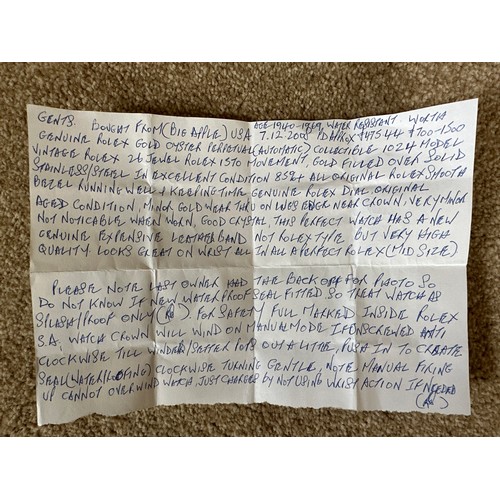 GENTS. BOUGHT FROM (BIG APPLE) USA 7.12.200 AGE 1940-1969, WATER RESISTANT. WORTH
GENUINE ROLEX GOLD OYSTER PERPETUAL (AUTOMATIC) COLLECTIBLE 1024 MODEL
VINTAGE ROLEX 26 JEWEL ROLEX 1570 MOVEMENT, GOLD FILLED OVER SOLID
STAINLESS/STEEL IN EXCELLENT CONDITION 85%+ ALL ORIGINAL ROLEX SMOOTH
BEZEL RUNNING WELL & KEEPING TIME GENUINE ROLEX DIAL ORIGINAL
AGED CONDITION, MINOR GOLD WEAR THRU ON LUGS EDGE NEAR CROWN, VERY MINOR
NOT NOTICABLE WHEN WORN, GOOD CRYSTAL, THIS PERFECT WATCH HAS A NEW
GENUINE EXPENSIVE LEATHER BAND NOT ROLEX TYPE BUT VERY HIGH
QUALITY LOOKS GREAT ON WRIST ALL IN ALL A PERFECT ROLEX (MID SIZE)
PLEASE NOTE LAST OWNER HAD THE BACK OFF FOR PHOTO SO
DO NOT KNOW IF NEW WATERPROOF SEAL FITTED SO TREAT WATCH AS
SPLASH/PROOF ONLY FOR SAFETY FULL MARKED INSIDE ROLEX
S.A, WATCH CROWN WILL WIND ON MANUAL MODE IF UNSCREWED ANTI
CLOCKWISE TILL WINDER/SETTER POPS OUT A LITTLE, PUSH IN TO CREATE
SEAL (WATER/PROOFING) CLOCKWISE TURNING GENTLE, NOTE MANUAL FIXING
UP CANNOT OVERWIND WATCH, JUST CHARGES BY NOT USING WRIST ACTION IF NEEDED